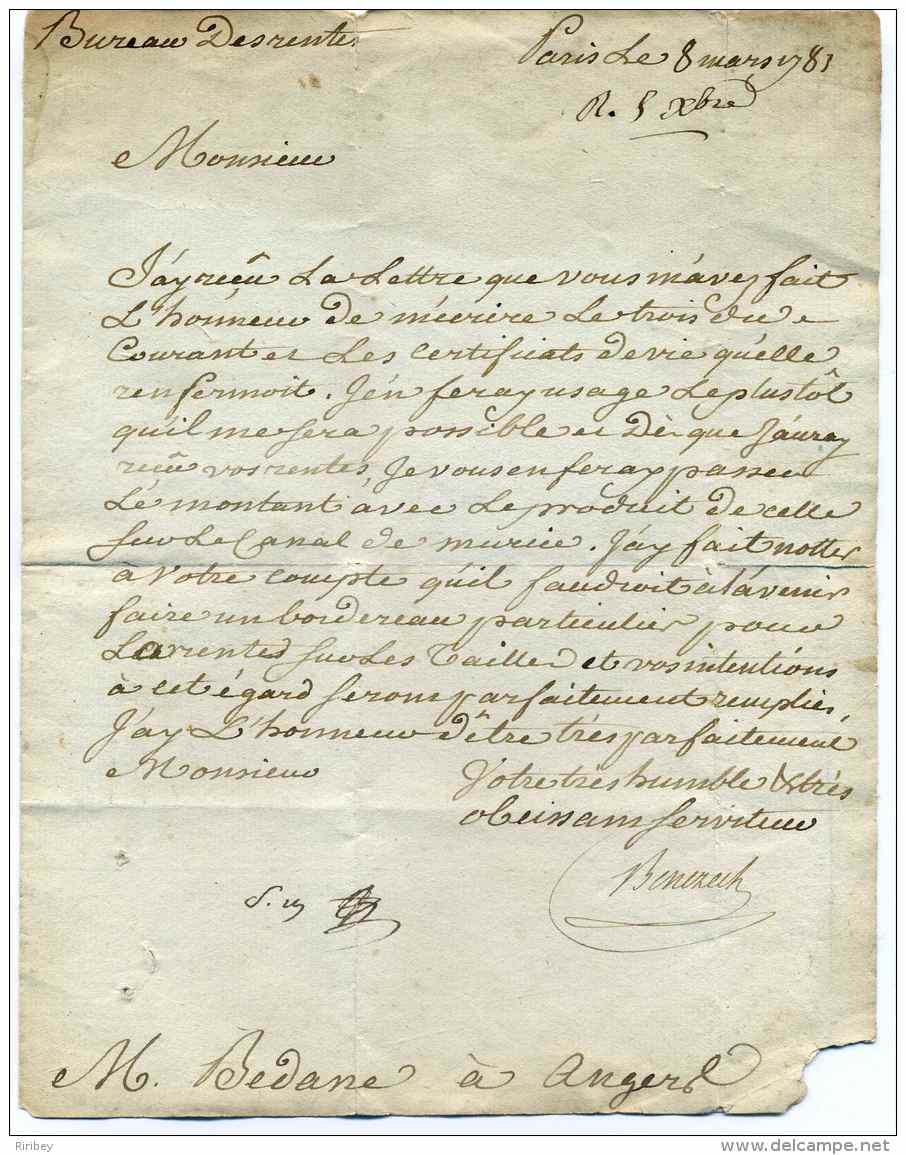 Bureau Des rentes
Paris Le 8 mars 1783
R. 5 Xbre
Monsieur
J'ay reçu La Lettre que vous m'avez fait
L'honneur de m'ecrire Le trois du
Courant et Les certificats de vie qu'elle
renfermoit. J'en feray usage Le plustôt
qu'il me sera possible et Dès que J'auray
reçû vos rentes, Je vous en feray passer
Lé montant avec Le produit de celle
sur Le Canal de murcie. J'ay fait notter
à votre compte qu'il faudroit à l'avenir
faire un bordereau particulier pour
La rentes sur Les Tailles et vos intentions
à cet égard seront parfaitement remplies,
J'ay L'honneur d'être très parfaitement
Monsieur
Votre très humble & très
obeissant serviteur
Benezech
M. Bedane à Angers
Riribey
www.delcampe.net